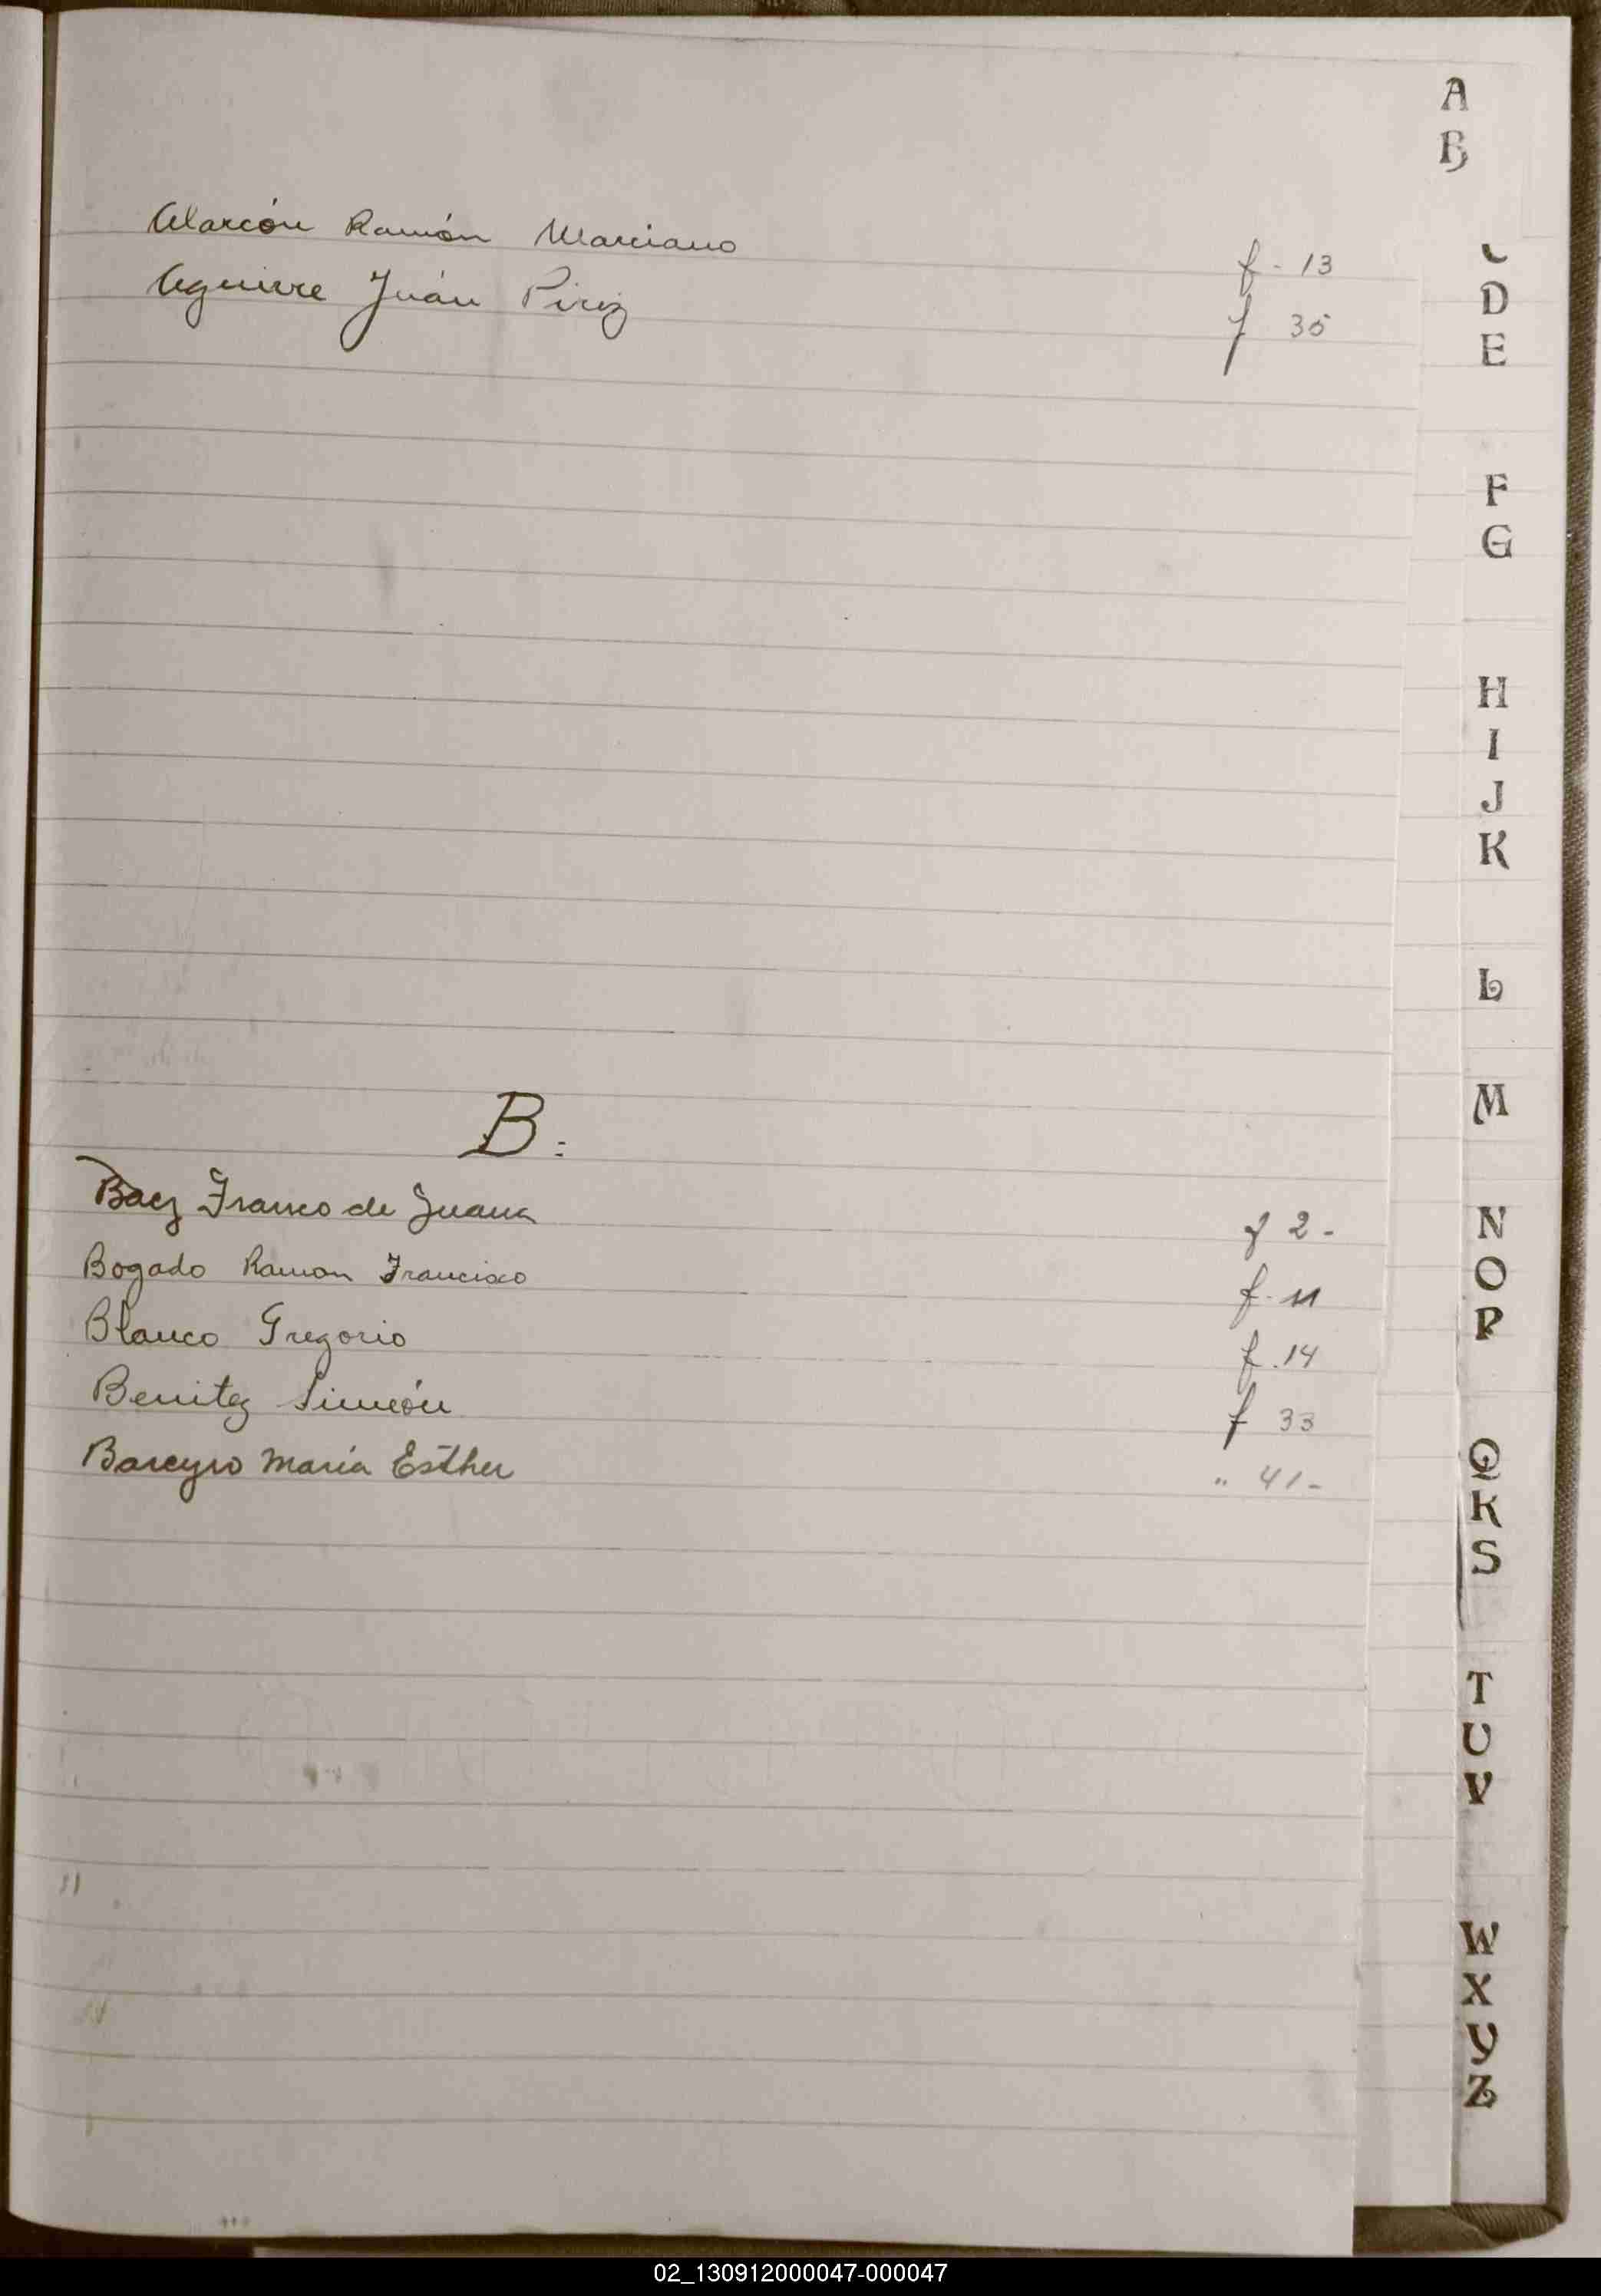 A
B
Alarcón Ramón Marciano f - 13
Aguirre Juán Piriz f 35
D
E
F
G
H
I
J
K
L
M
B:
Baez Franco de Juana f 2 -
Bogado Ramon Francisco f - 11
Blanco Gregorio f. 14
Benitez Simeón f 33
Bareyro María Esther " 41 -
N
O
P
Q
R
S
T
U
V
W
X
Y
Z
02_130912000047-000047